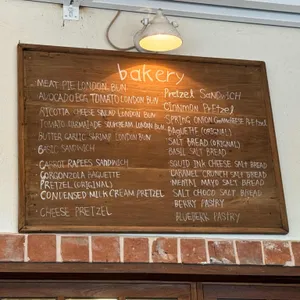 bakery
MEAT PIE LONDON BUN
AVOCADO EGG TOMATO LONDON BUN
RICOTTA CHEESE SALAD LONDON BUN
TOMATO MARMALADE SOUR CREAM LONDON BUN
BUTTER GARLIC SHRIMP LONDON BUN
SANDWICH
CARROT RAPEES SANDWICH
GORGONZOLA BAGUETTE
PRETZEL (ORIGINAL)
CONDENSED MILK CREAM PRETZEL
CHEESE PRETZEL
PRETZEL SANDWICH
CINNAMON PRETZEL
SPRING ONION CREAM CHEESE PRETZEL
BAGUETTE (ORIGINAL)
SALT BREAD (ORIGINAL)
BASIL SALT BREAD
SQUID INK CHEESE SALT BREAD
CARAMEL CRUNCH SALT BREAD
MENTAI MAYO SALT BREAD
SALT CHOCO SALT BREAD
BERRY PASTRY
BLUEBERRY PASTRY